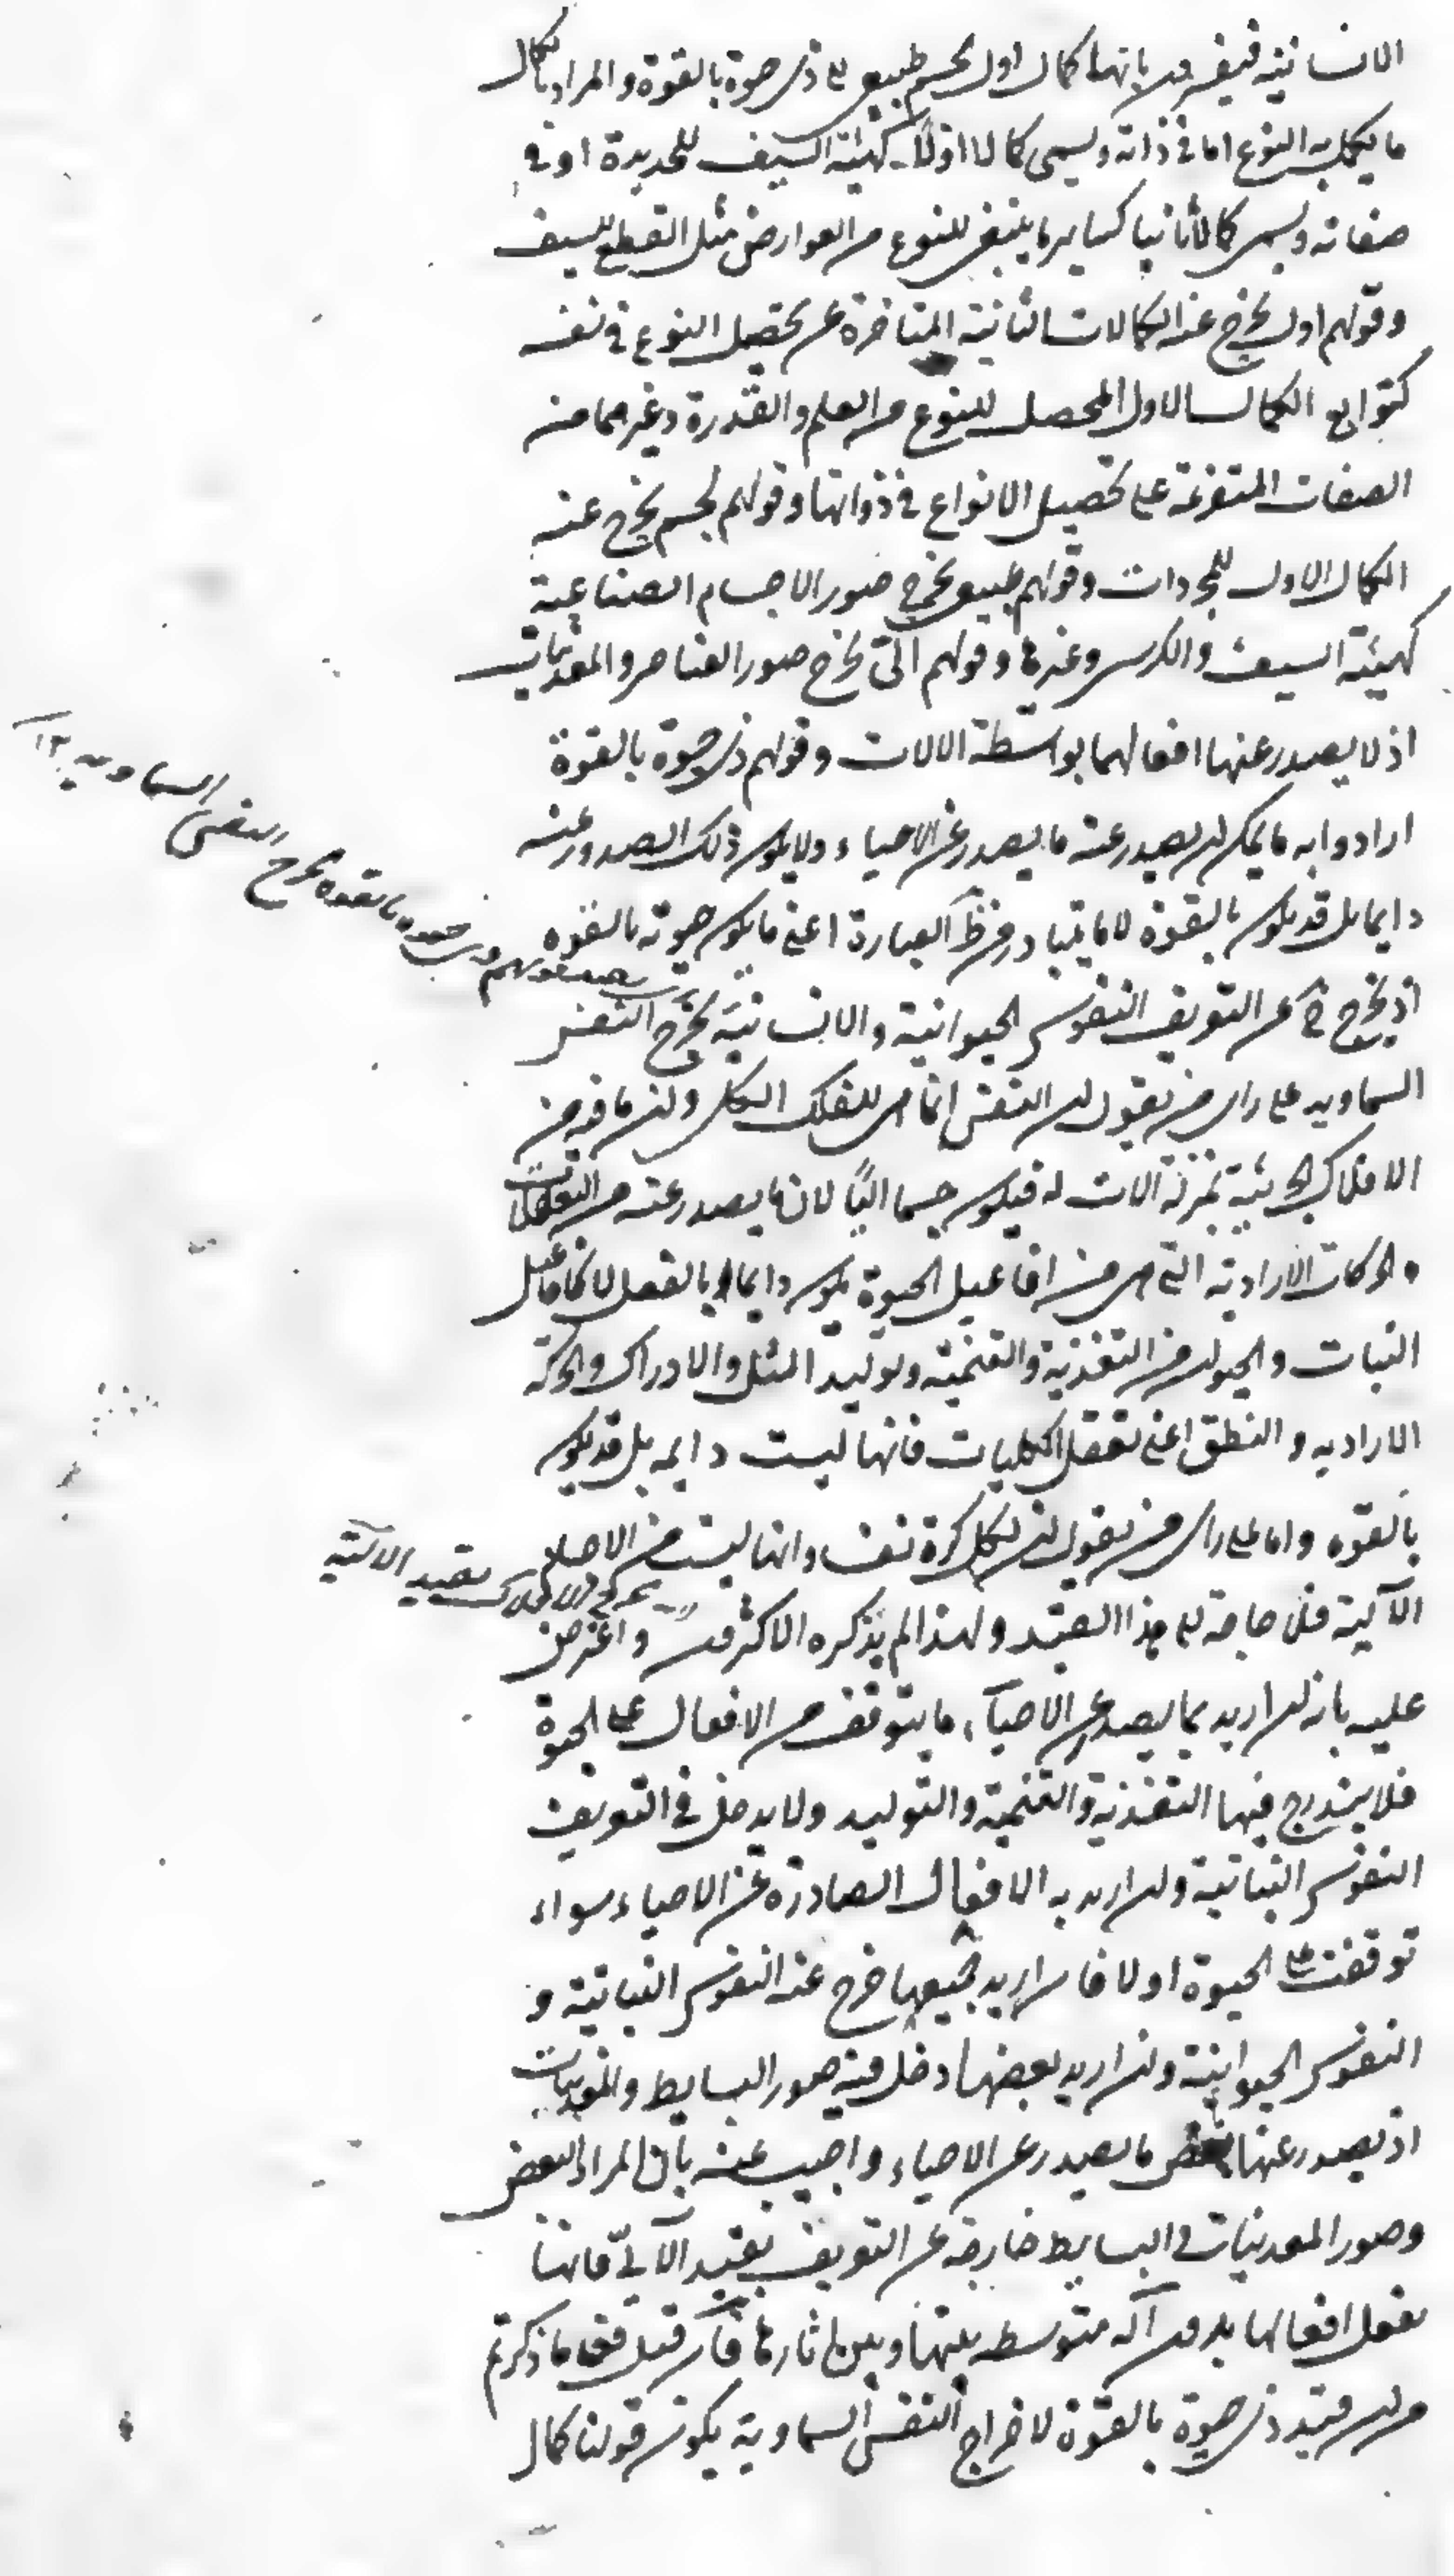 الانسانية فيعرفون بانها كمال اول لجسم طبيعى آلى ذى حيوة بالقوة والمراد بالكمال
ما يكمل به النوع اما فى ذاته ويسمى كمالا اولا كهيئة السيف للحديدة او فى
صفاته ويسمى كمالا ثانيا كساير ما يتبع للنوع من العوارض مثل القطع للسيف
وقولهم اول يخرج عنه الكمالات الثانية المتاخرة عن تحصيل النوع فى نفسه
كتوابع الكمال الاول المحصل للنوع من العلم والقدرة وغيرهما من
الصفات المتفرعة على تحصيل الانواع فى ذواتها وقولهم لجسم يخرج عنه
الكمال الاول للمجردات وقولهم طبيعى يخرج صور الاجسام الصناعية
كهيئة السيف والكرسى وغيرها وقولهم آلى يخرج صور العناصر والمعدنيات
اذ لا يصدر عنها افعالهما بواسطة الالات وقولهم ذى حيوة بالقوة
ارادوا به ما يمكن ان يصدر عنه ما يصدر عن الاحياء ولا يكون ذلك الصدور عنه
دايما بل قد يكون بالقوة لا ما يتبادر من ظ العبارة اعنى ما يكون حيوته بالقوه
اذ يخرج ح عن التعريف النفوس الحيوانية والانسانية يخرج النفس
فقولهم ذى حيوه بالقوه يخرج النفس السماويه ١٢
السماويه على راى من يقول ان النفس انما هى للفلك الكلى وان ما فيه من
الافلاك الجزئية بمنزلة الات له فيكون جسما آليا لان ما يصدر عنه من التعقلات
والحركات الارادية التى هى من افاعيل الحيوة يكون دايما بالفعل لا كافاعيل
النبات والحيوان من التغذية والتنمية وتوليد المثل والادراك والحركة
الاراديه والنطق اعنى تعقل الكليات فانها ليست دايمه بل قد يكون
بالقوه واما على راى من يقول ان لكل كرة نفسا وانها ليست من الاجسام
يخرج الافلاك بقيد الالية
الآلية فلا حاجة الى هذا القيد ولهذا لم يذكره الاكثرون واعترض
عليه بانه ان اريد بما يصدر عن الاحياء ما يتوقف من الافعال على الحيوة
فلا يندرج فيها التغذية والتنمية والتوليد ولا يدخل فى التعريف
النفوس النباتية وان اريد به الافعال الصادرة عن الاحياء سواء
توقفت على الحيوة او لا فان اريد جميعها خرج عنه النفوس النباتية و
النفوس الحيوانية وان اريد بعضها دخل فيه صور البسايط والمعدنيات
اذ يصدر عنها بعض ما يصدر عن الاحياء واجيب عنه بان المراد البعض
وصور المعدنيات و البسايط خارجة عن التعريف بقيد الآلى فانها
تفعل افعالها بدون آله متوسطه بينها وبين اثارها فان قيل فعلى ما ذكرتم
من ان قيد ذى حيوة بالقوة لاخراج النفس السماوية يكون قولنا كمال